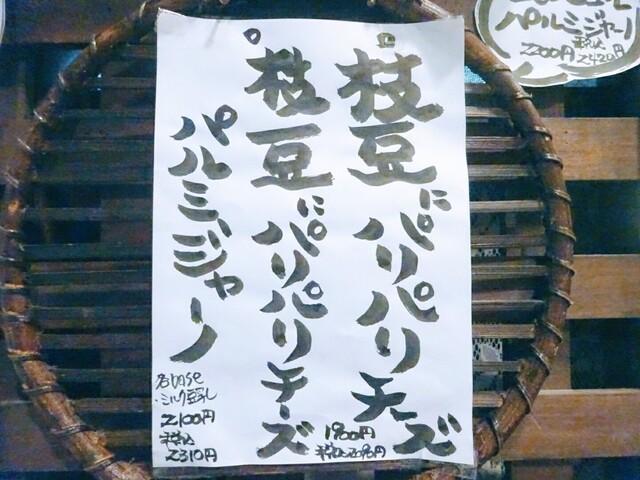 パルミジャーノ
2200円 税込 2420円
枝豆にパリパリチーズ
1900円
税込2090円
枝豆にパリパリチーズ
パルミジャーノ
各base
・ミルク豆乳
2100円
税込
2310円